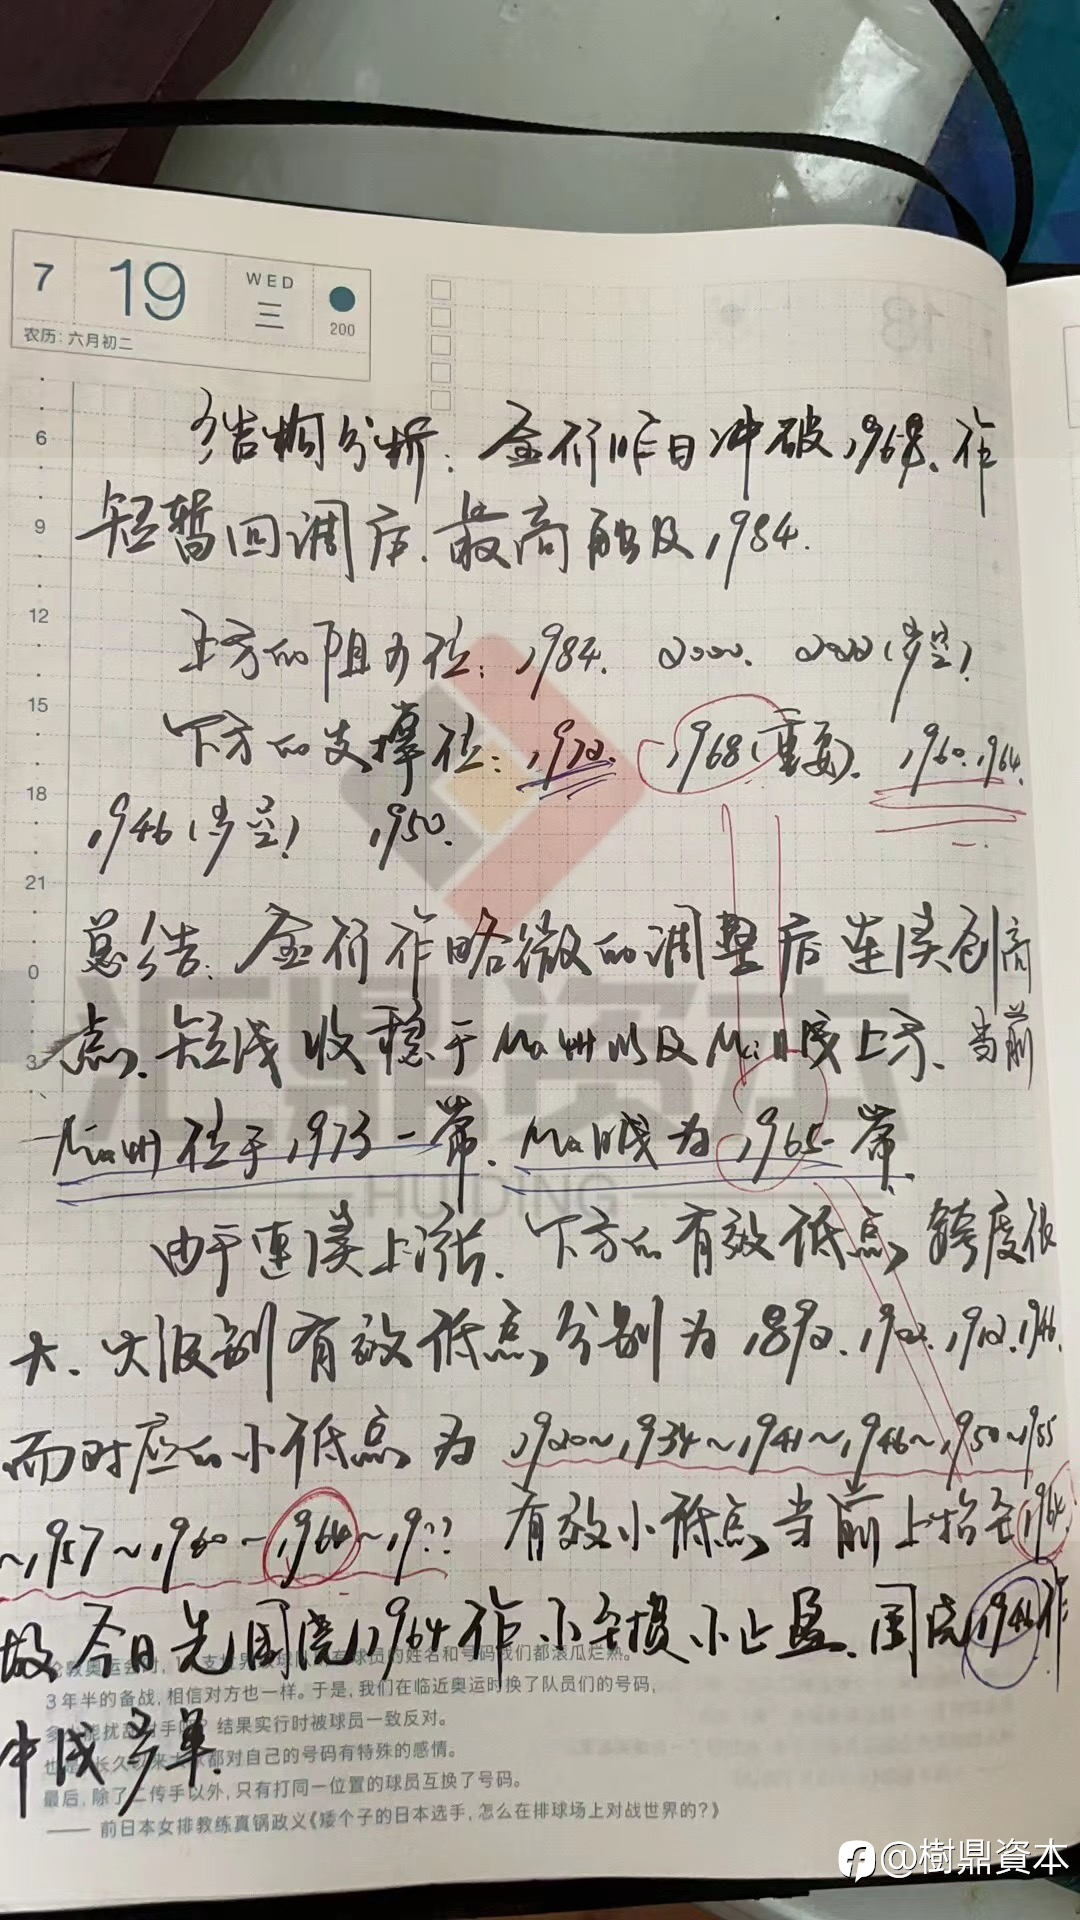 7 19 WED 三 200
农历: 六月初二
6
9
12
15
18
21
0
3
结构分析. 金价昨日冲破1968. 作
短暂回调后. 最高触及1984.
上方的阻力位: 1984. 2000.
下方的支撑位: 1972. 1968(重要). 1960. 1964.
1946 1950.
总结: 金价作略微的调整后连续创高
点. 短线收稳于Ma 以及Ma 线上方. 当前
位于1973一带. Ma 线为1965一带.
由于连续上涨. 下方的有效低点跨度很
大. 大级别有效低点分别为1892. 1912. 1946.
而对应的小低点为1920~1934~1941~1946~1950~1955
~1957~1960~1964~19?? 有效小低点当前上抬至1964.
故今日先围绕1964作小止损小止盈. 围绕1946作
中线多单.
汇鼎资本
HUIDING
的姓名和号码我们都滚瓜烂熟。
3年半的备战, 相信对方也一样。于是, 我们在临近奥运时换了队员们的号码,
结果实行时被球员一致反对。
都对自己的号码有特殊的感情。
最后, 除了二传手以外, 只有打同一位置的球员互换了号码。
—— 前日本女排教练真锅政义《矮个子的日本选手, 怎么在排球场上对战世界的?》
@樹鼎資本